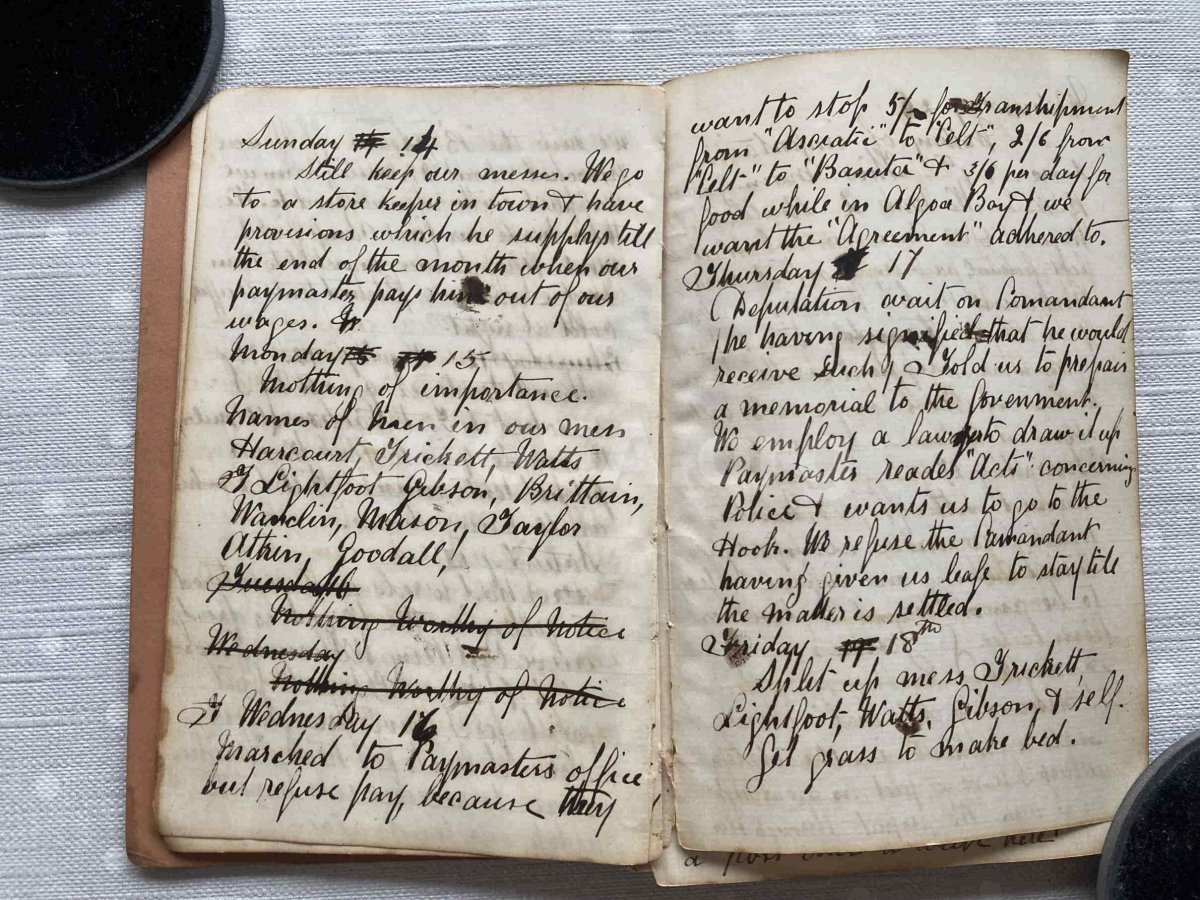 Sunday 14
Still keep our messes. We go
to a store keeper in town & have
provisions which he supplys till
the end of the month when our
paymaster pays him out of our
wages.
Monday 15
Nothing of importance.
Names of Men in our mess
Harcourt, Trickett, Watts
Lightfoot Gibson, Brittain,
Mason, Taylor
Atkin, Goodall,
Tuesday 16
Nothing Worthy of Notice
Wednesday
Nothing Worthy of Notice
Wednesday 16
Marched to Paymasters office
but refuse pay, because they
want to stop 5/- for Transhipment
from "Asciatic" to "Celt", 2/6 from
"Celt" to "Basuta" & 3/6 per day for
food while in Algoa Bay & we
want the "Agreement" adhered to.
Thursday 17
(Deputation wait on Comandant
(he having signified that he would
receive such) Told us to prepair
a memorial to the Govenment.
We employ a lawyer to draw it up
Paymaster reades "Acts" concerning
Police & wants us to go to the
Hook. We refuse the Comandant
having given us leafe to stay till
the matter is settled.
Friday 17 18th
Split up mess Trickett,
Lightfoot, Watts, Gibson, & self.
Get grass to make bed.
a